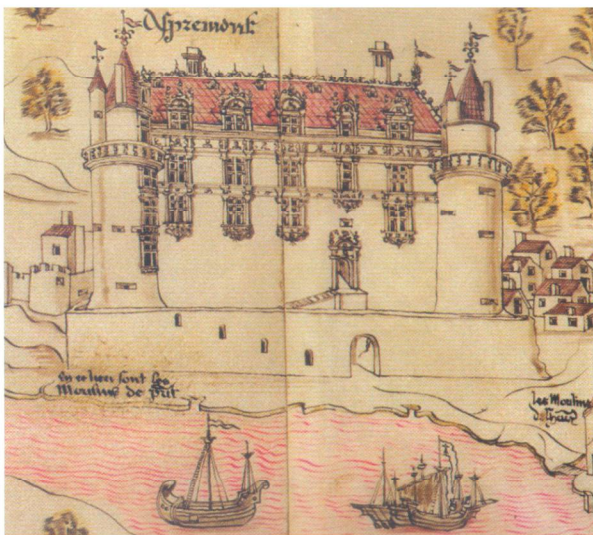 Aspremont
en ce lieu sont les
Moulins de
les Moulins